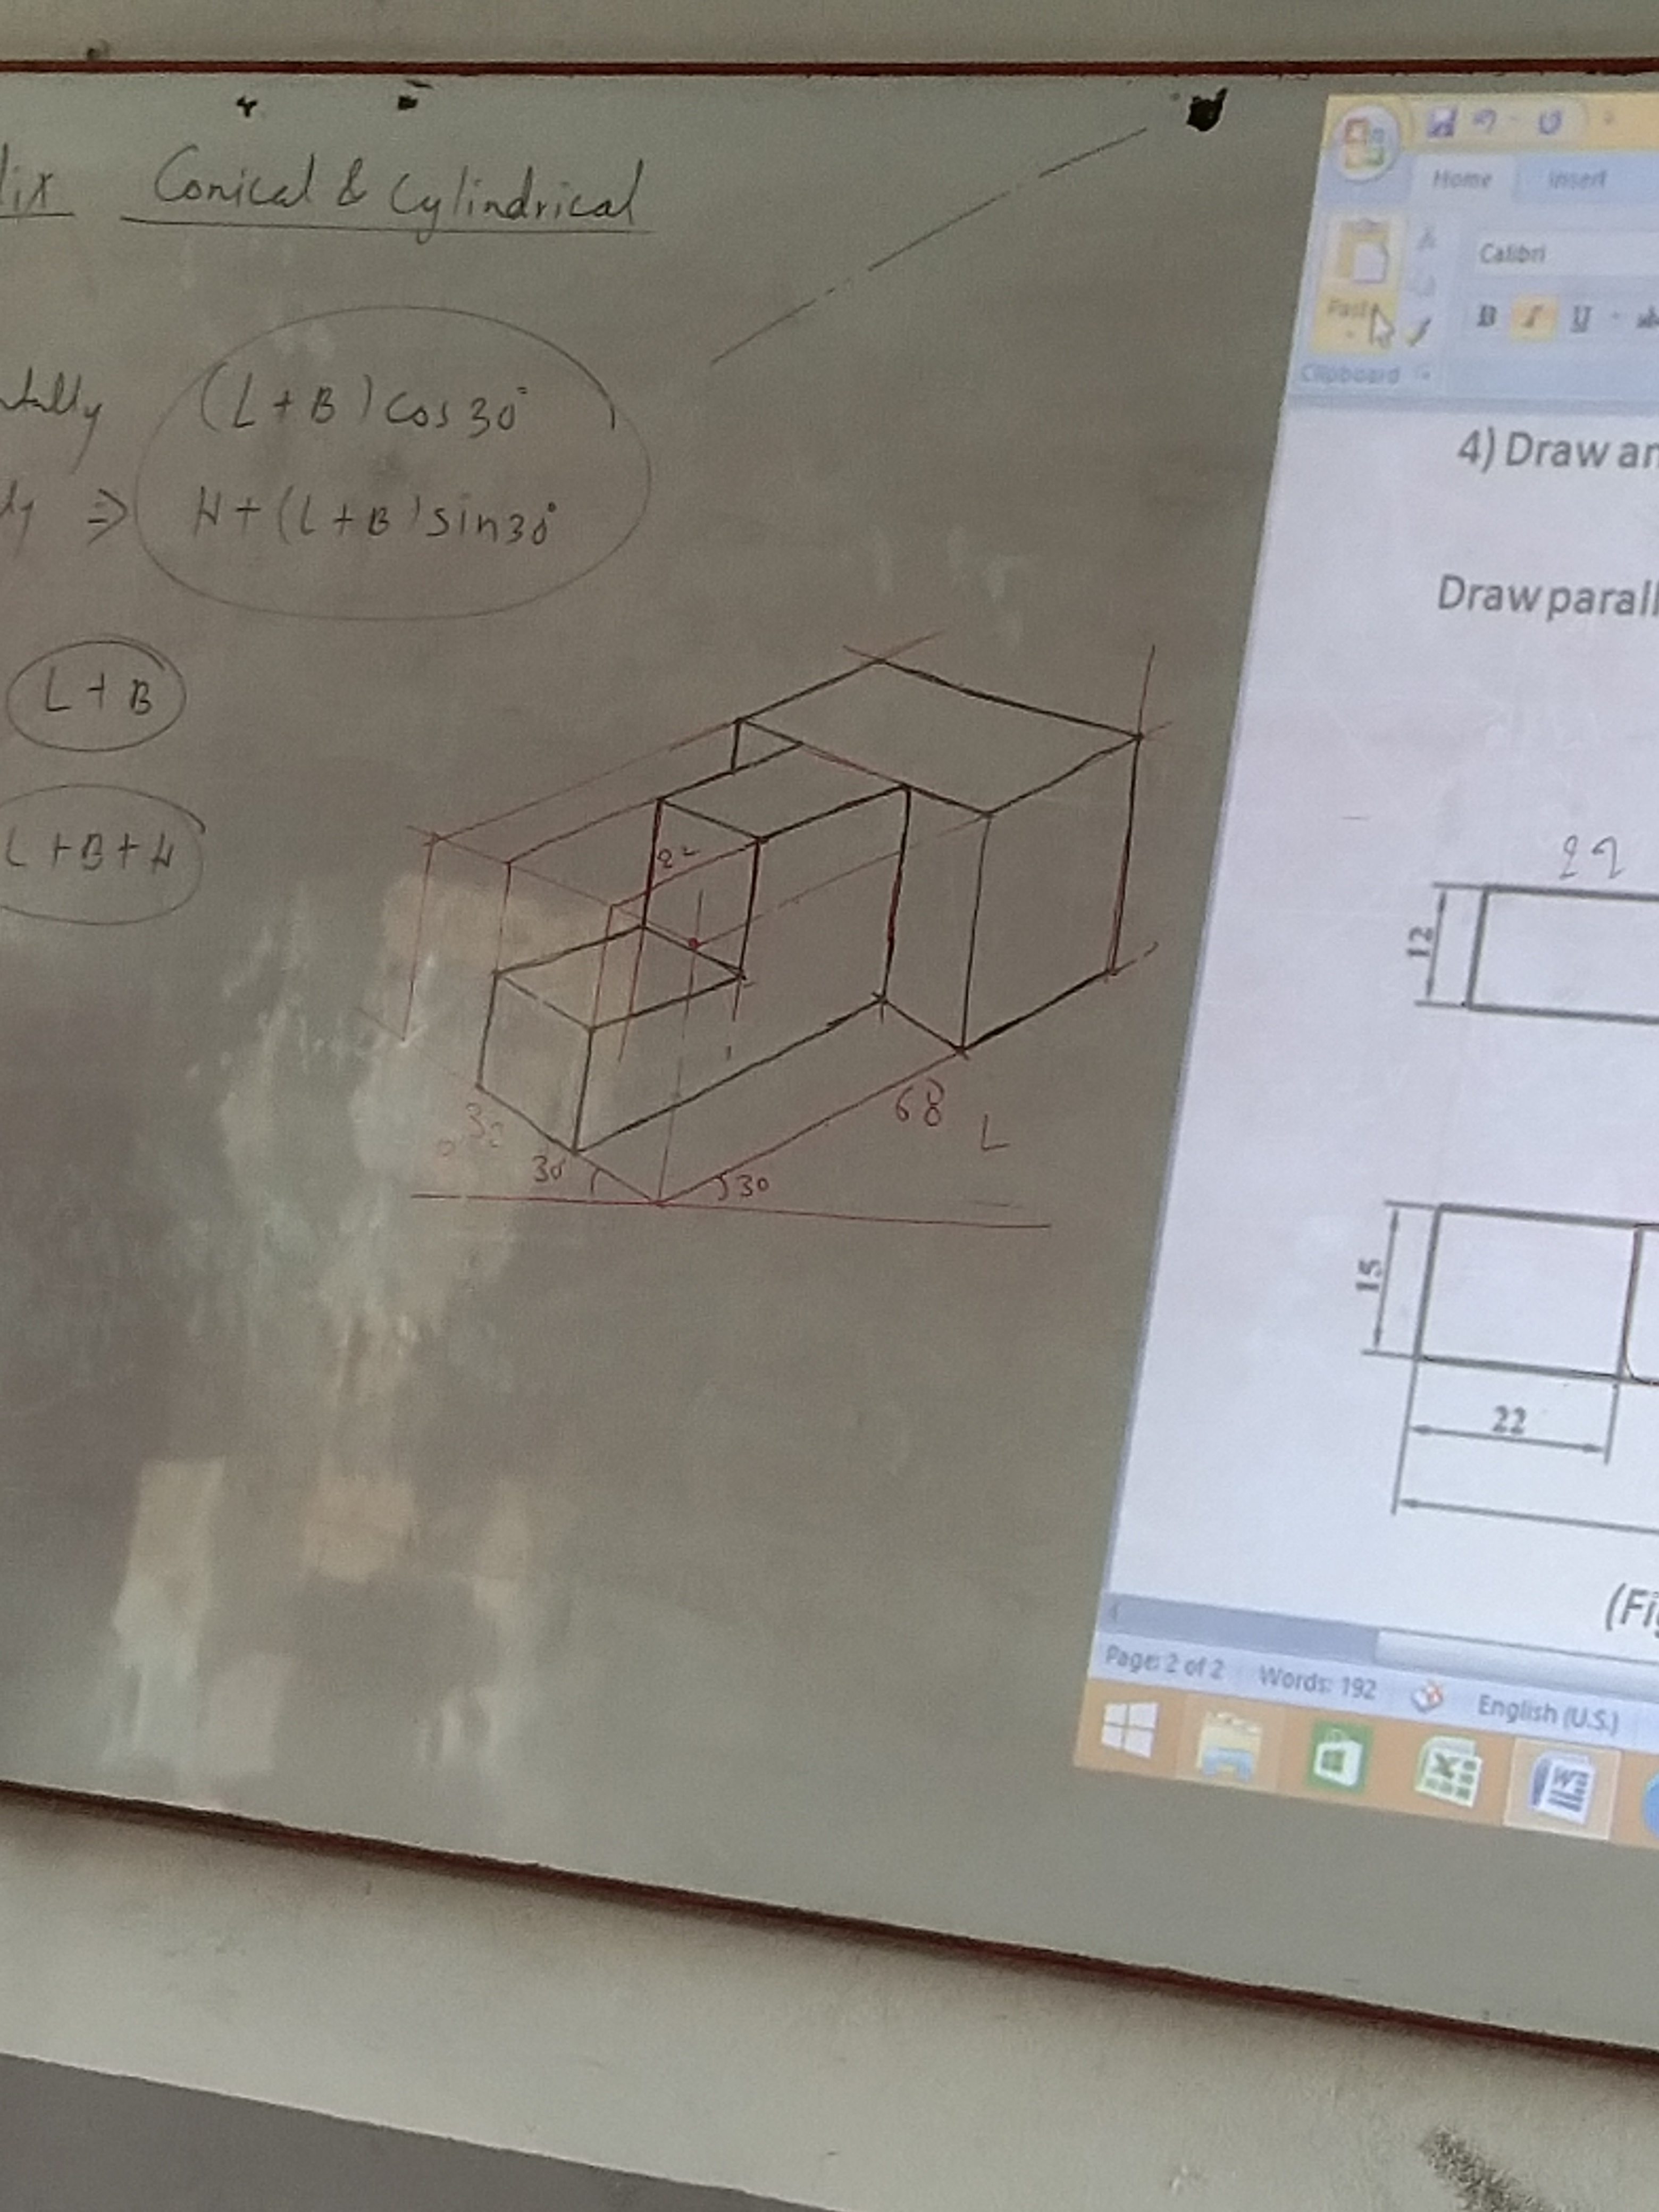 Conical & Cylindrical
(L+B) cos 30°
⇒ H+(L+B) sin 30°
L+B
L+B+H
22
68
L
30
30
30
Home Insert
Calibri
Paste
B I U
Clipboard
4) Draw an
Draw parall
22
12
15
22
(Fig
Page: 2 of 2 Words: 192 English (U.S.)